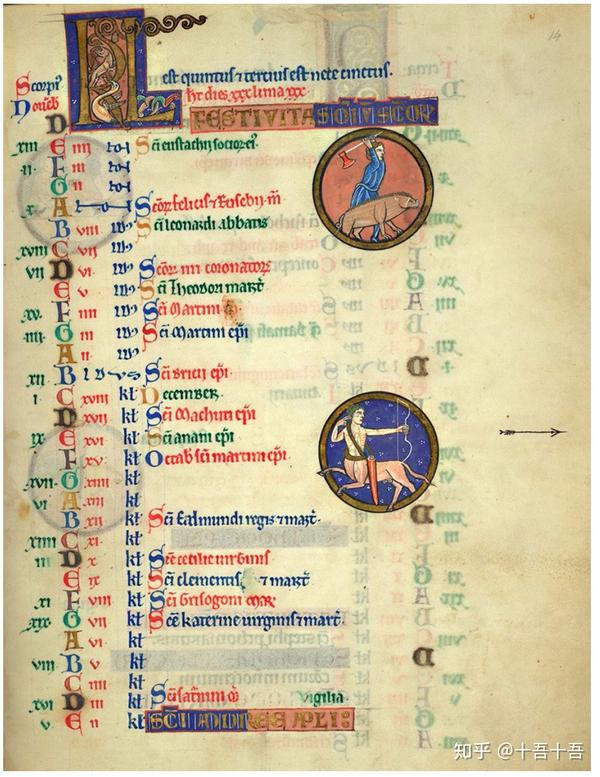 14
KL
Scorpi'
Nouēb
est quintus & tercius est nece cinctus.
Ht dies xxx luna xxx
D FESTIVITAS OMNIV SCOR
xiii E iiii Sci eustachii socior ei'
ii F iii
G ii
x A Scor felicis & Eusebii m̄
B viii Sci leonardi abbatis
xviii C vii
vii D vi Scor iiii coronator
E v Sci Theodori marī
xv F iiii Sci Martini
iiii G iii Sci Martini epi
A ii
xii B Idus Sci Bricii epi
i C xviii kl December
D xvii kl Sci Machuti epi
ix E xvi kl Sci aniani epi
F xv kl Octab sci martini epi
xvii G xiiii kl
vi A xiii kl
B xii kl Sci Eadmundi regis & mart.
xiiii C xi kl
iii D x kl Sce cecilie uirginis
E ix kl Sci clementis & mart
xi F viii kl Sci Grisogoni mar
xix G vii kl Sce katerine uirginis & mart.
A vi kl
viii B v kl
C iiii kl
xvi D iii kl Sci saturnini Vigilia
v E ii kl SCI ANDREE APLI
知乎 @十吾十吾